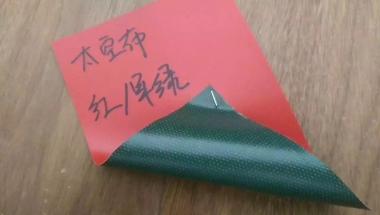 太空布
红/军绿